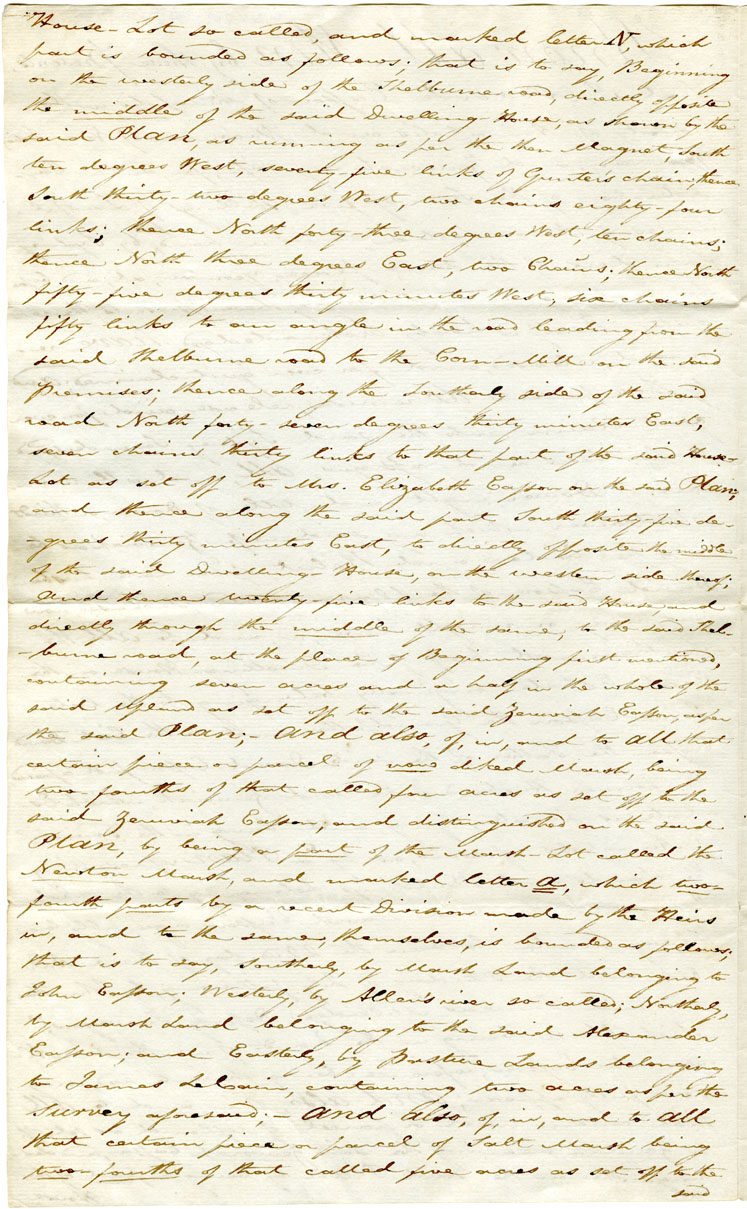 House-Lot so called, and marked letter N, which
part is bounded as follows; that is to say, Beginning
on the westerly side of the Shelburne road, directly opposite
the middle of the said Dwelling-House, as shown by the
said Plan, as running as per the then Magnet, South
ten degrees West, seventy-five links of Gunter's chain, thence
South thirty-two degrees West, two chains eighty-four
links; thence North forty-three degrees West, ten chains;
thence North three degrees East, two Chains; thence North
fifty-five degrees thirty minutes West, six chains
fifty links to an angle in the road leading from the
said Shelburne road to the Corn-Mill on the said
Premises; thence along the Southerly side of the said
road North forty-seven degrees thirty minutes East,
seven chains thirty links to that part of the said House-
Lot as set off to Mrs. Elizabeth Easson on the said Plan;
and thence along the said part South thirty-five de-
-grees thirty minutes East, to directly opposite the middle
of the said Dwelling-House, on the western side thereof;
and thence twenty-five links to the said House and
directly through the middle of the same, to the said Shel-
-burne road, at the place of Beginning first mentioned,
containing seven acres and a half in the whole of the
said upland as set off to the said Zeruviah Easson, as per
the said Plan;- and also, of, in, and to all that
certain piece or parcel of now diked Marsh, being
two-fourths of that called four acres as set off to the
said Zeruviah Easson, and distinguished on the said
Plan, by being a part of the Marsh-Lot called the
Newton Marsh, and marked letter a, which two-
fourth parts by a recent Division made by the Heirs
in, and to the same, themselves, is bounded as follows;
that is to say, Southerly, by Marsh Land belonging to
John Easson; Westerly, by Allen's river so called; Northerly,
by Marsh Land belonging to the said Alexander
Easson; and Easterly, by Pasture Lands belonging
to James LeCain, containing two acres as per the
Survey aforesaid;- and also, of, in, and to all
that certain piece or parcel of Salt Marsh being
two-fourths of that called five acres as set off to the
said